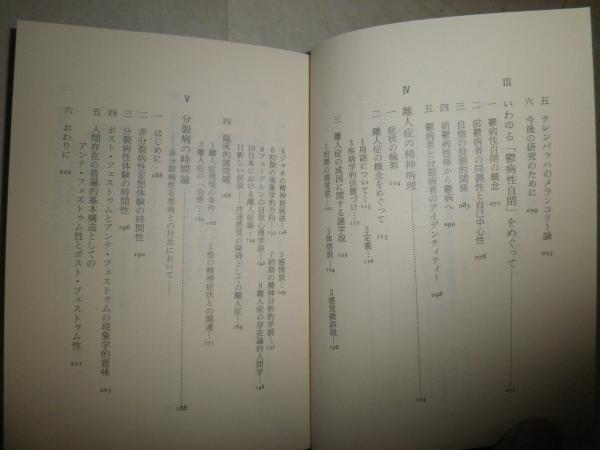 五 テレンバッハのメランコリー論 055
六 今後の研究のために 059
III いわゆる「鬱病性自閉」をめぐって 071
一 鬱病性自閉の概念 071
二 前鬱病者の回帰性と自己中心性 076
三 自他の役割的関係 085
四 前鬱病性格から鬱病へ 090
五 鬱病者と分裂病者のアイデンティティー 098
IV 離人症の精神病理 104
一 症状の輪郭 104
二 離人症の概念をめぐって 113
1 用語について… 2 定義…
3 疾病学的位置づけ…118
三 離人症の成因に関する諸学説 122
1 初期の感覚説… 2 体感説…124 3 感覚錯誤説…126
4 ジャネの精神衰弱説…128 5 感情説…129
6 初期の現象学的方向…133 7 初期の精神分析的学説…137
8 フェーデルンの自我心理学説…142 9 離人症の存在論的人間学…148
10 日本における離人症論…154
11 新しい展望――共通感覚の障碍としての離人症…164
四 臨床的諸問題
1 離人症発現の条件… 2 他の精神症状との関連…171
3 離人症の「治療」…
V 分裂病の時間論 188
――非分裂病性妄想病との対比において――
一 はじめに 188
二 非分裂病性妄想体験の時間性 190
三 分裂病性体験の時間性 196
四 ポスト・フェストゥムとアンテ・フェストゥムの現象学的意味 203
五 人間存在の普遍的基本構造としての
アンテ・フェストゥム性とポスト・フェストゥム性 211
六 おわりに 222